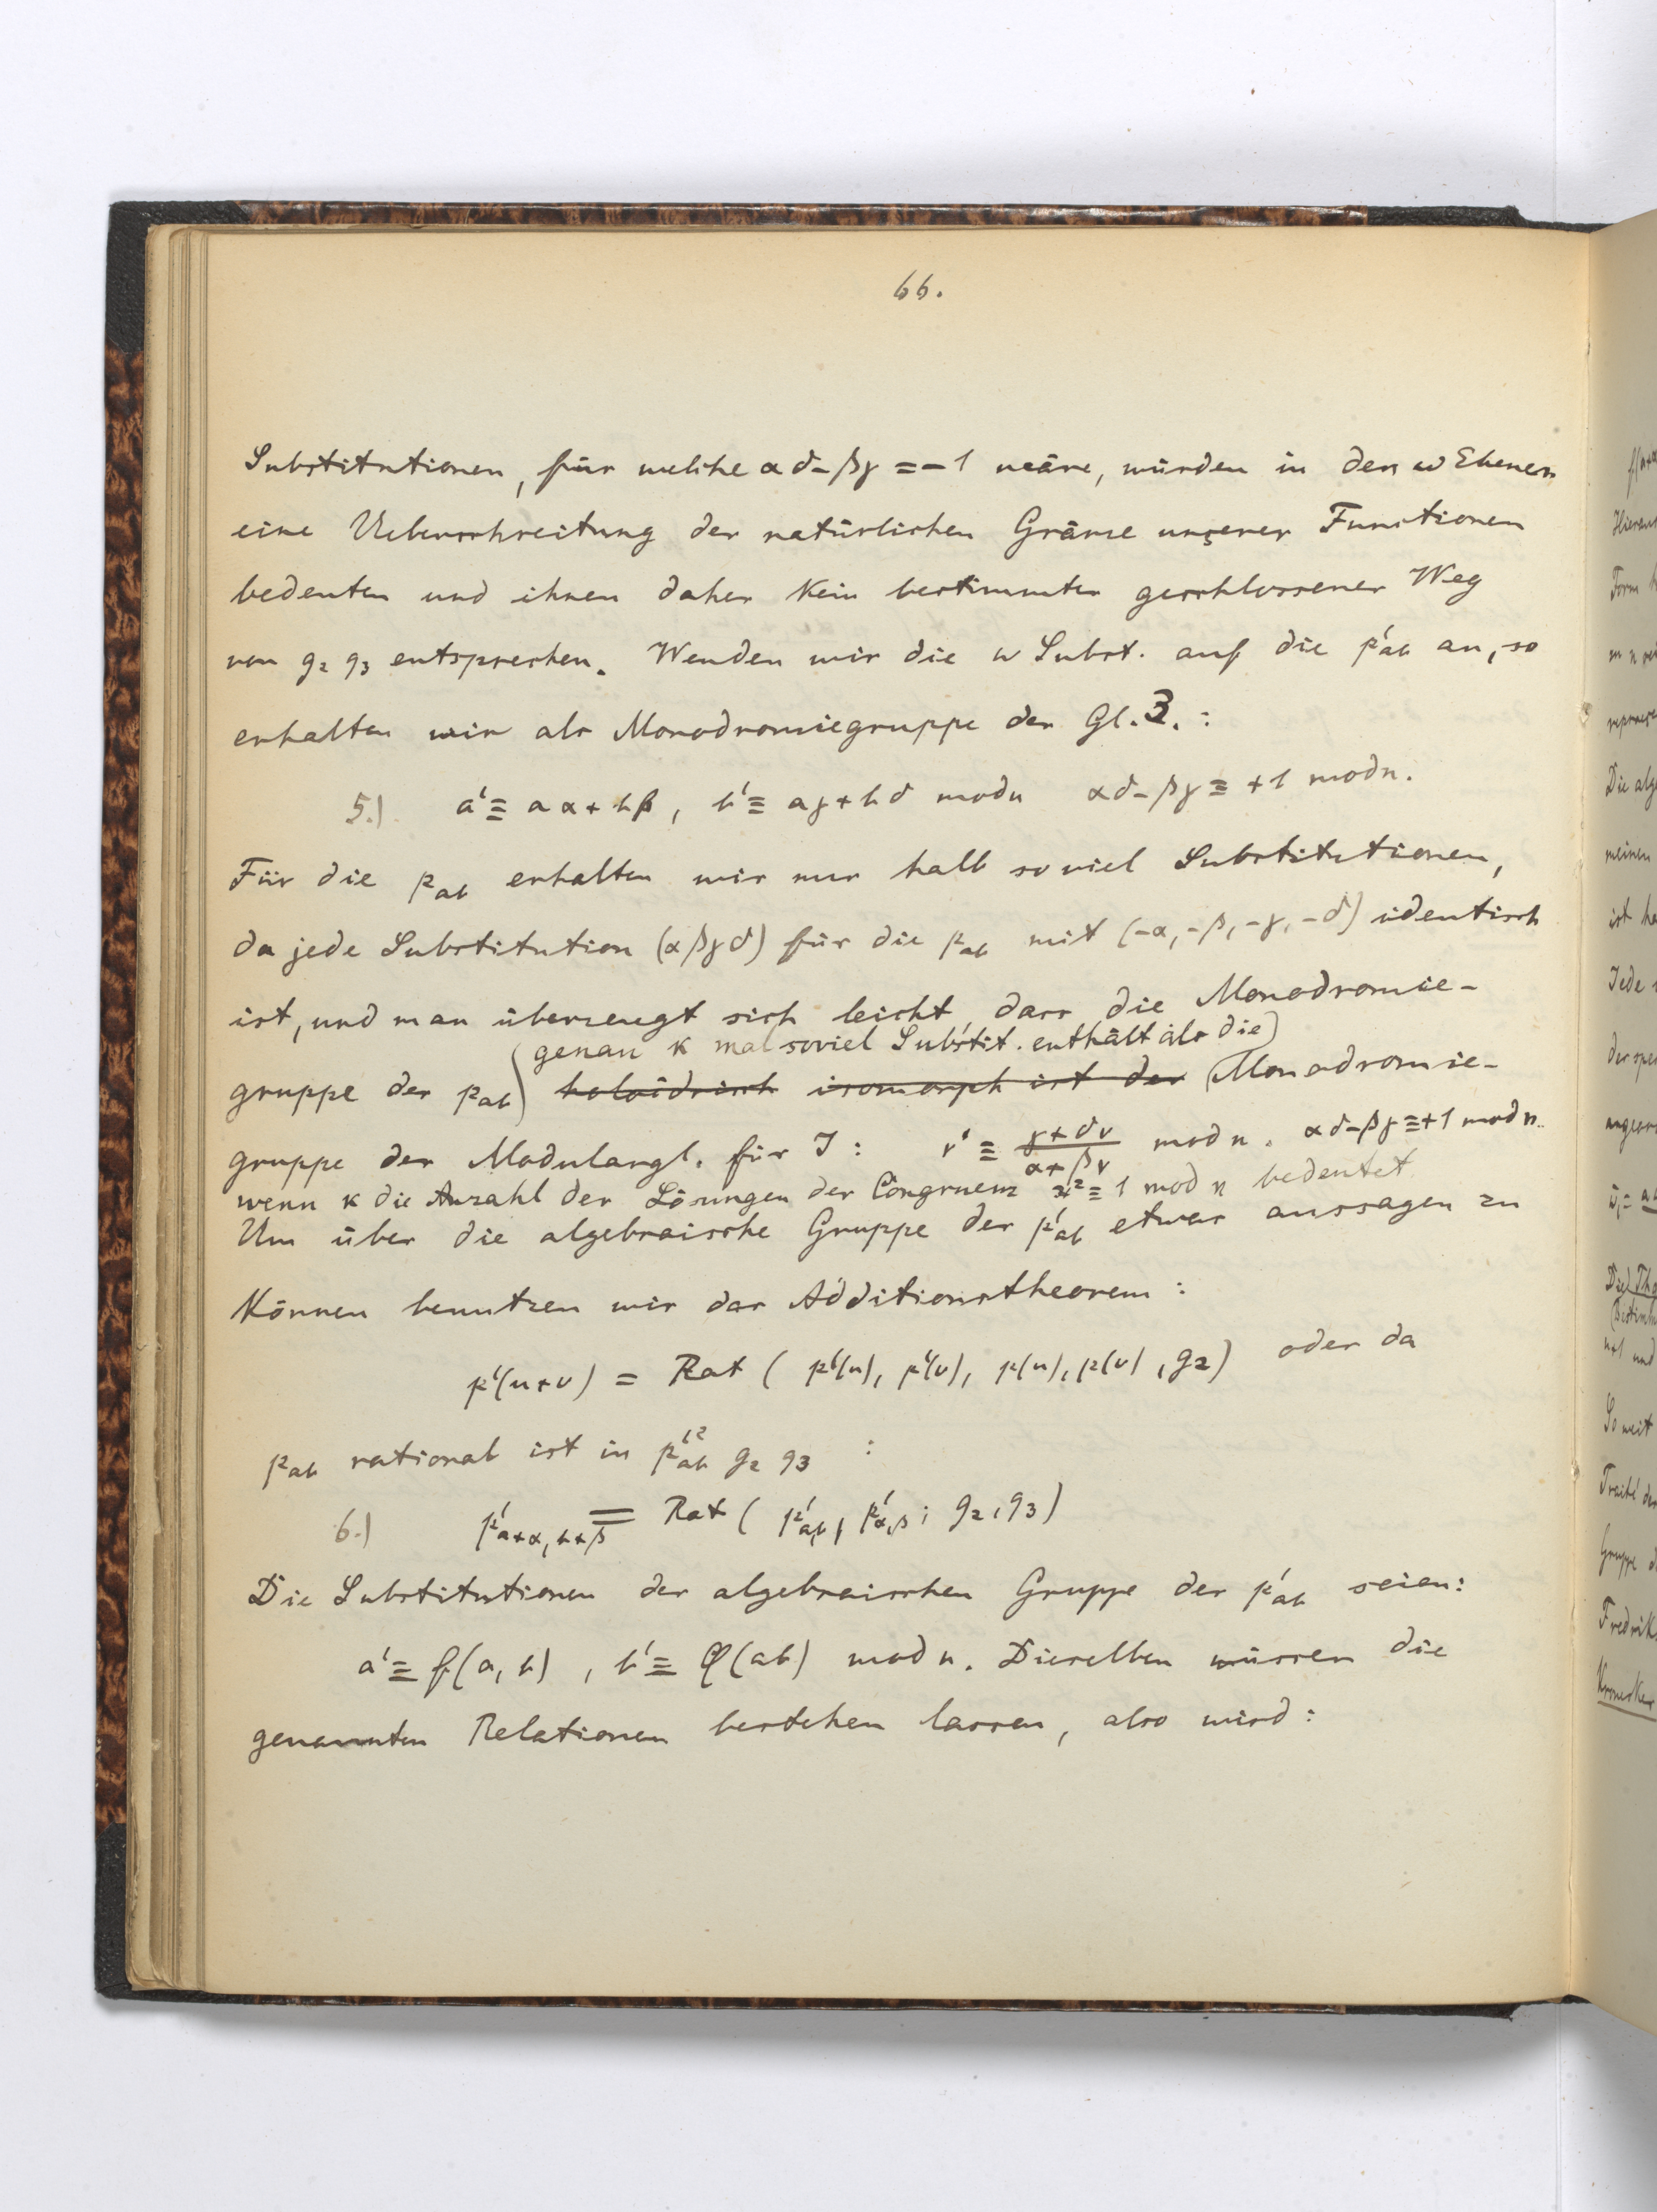 66.
Substitutionen, für welche αδ-βγ = -1 wäre, würden in den ω Ebenen
eine Ueberschreitung der natürlichen Gränze unserer Functionen
bedeuten und ihnen daher kein bestimmter geschlossener Weg
von g₂ g₃ entsprechen. Wenden wir die ω Subst. auf die p'ab an, so
erhalten wir als Monodromiegruppe der Gl. 3. :
5.) a' ≡ aα + bβ, b' ≡ aγ + bδ mod n αδ-βγ ≡ +1 mod n.
Für die pab erhalten wir nur halb soviel Substitutionen,
da jede Substitution (αβγδ) für die pab mit (-α, -β, -γ, -δ) identisch
ist, und man überzeugt sich leicht, dass die Monodromie-
genau κ mal soviel Substit. enthält als die
gruppe der pab holoëdrisch isomorph ist der Monodromie-
gruppe der Modulargl. für J : v' ≡ (γ+δv)/(α+βv) mod n. αδ-βγ ≡ +1 mod n.
wenn κ die Anzahl der Lösungen der Congruenz x² ≡ 1 mod n bedeutet
Um über die algebraische Gruppe der p'ab etwas aussagen zu
können benutzen wir das Additionstheorem :
p'(u+v) = Rat ( p'(u), p'(v), p(u), p(v), g₂) oder da
pab rational ist in p'²ab g₂ g₃ :
6.) p'a+α, b+β = Rat ( p'a,b, p'α,β ; g₂, g₃)
Die Substitutionen der algebraischen Gruppe der p'ab seien:
a' ≡ f(a, b) , b' ≡ φ(ab) mod n. Dieselben müssen die
genannten Relationen bestehen lassen, also wird :